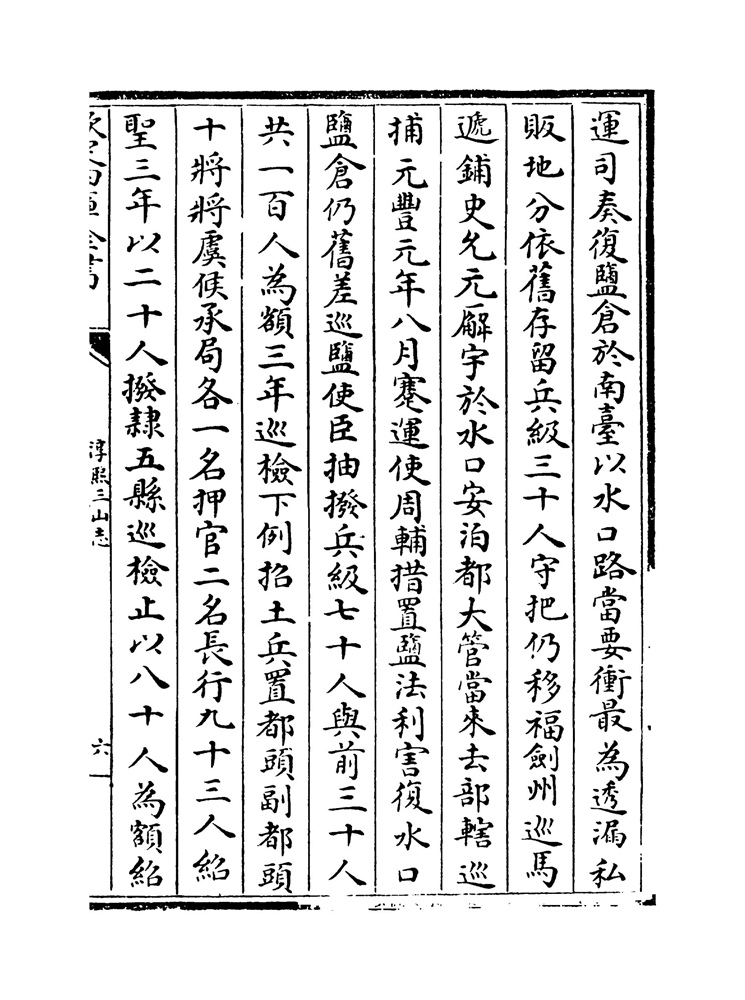 運司奏復鹽倉於南臺以水口路當要衝最為透漏私
販地分依舊存留兵級三十人守把仍移福劍州巡馬
遞鋪史允元廨宇於水口安泊都大管當來去部轄巡
捕元豐元年八月蹇運使周輔措置鹽法利害復水口
鹽倉仍舊差巡鹽使臣抽撥兵級七十人與前三十人
共一百人為額三年巡檢下例招土兵置都頭副都頭
十將將虞候承局各一名押官二名長行九十三人紹
聖三年以二十人撥隷五縣巡檢止以八十人為額紹
欽定四庫全書
淳熙三山志
六